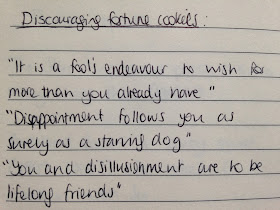 Discouraging fortune cookies:
"It is a fool's endeavour to wish for
more than you already have"
"Disappointment follows you as
surely as a starving dog"
"You and disillusionment are to be
lifelong friends"